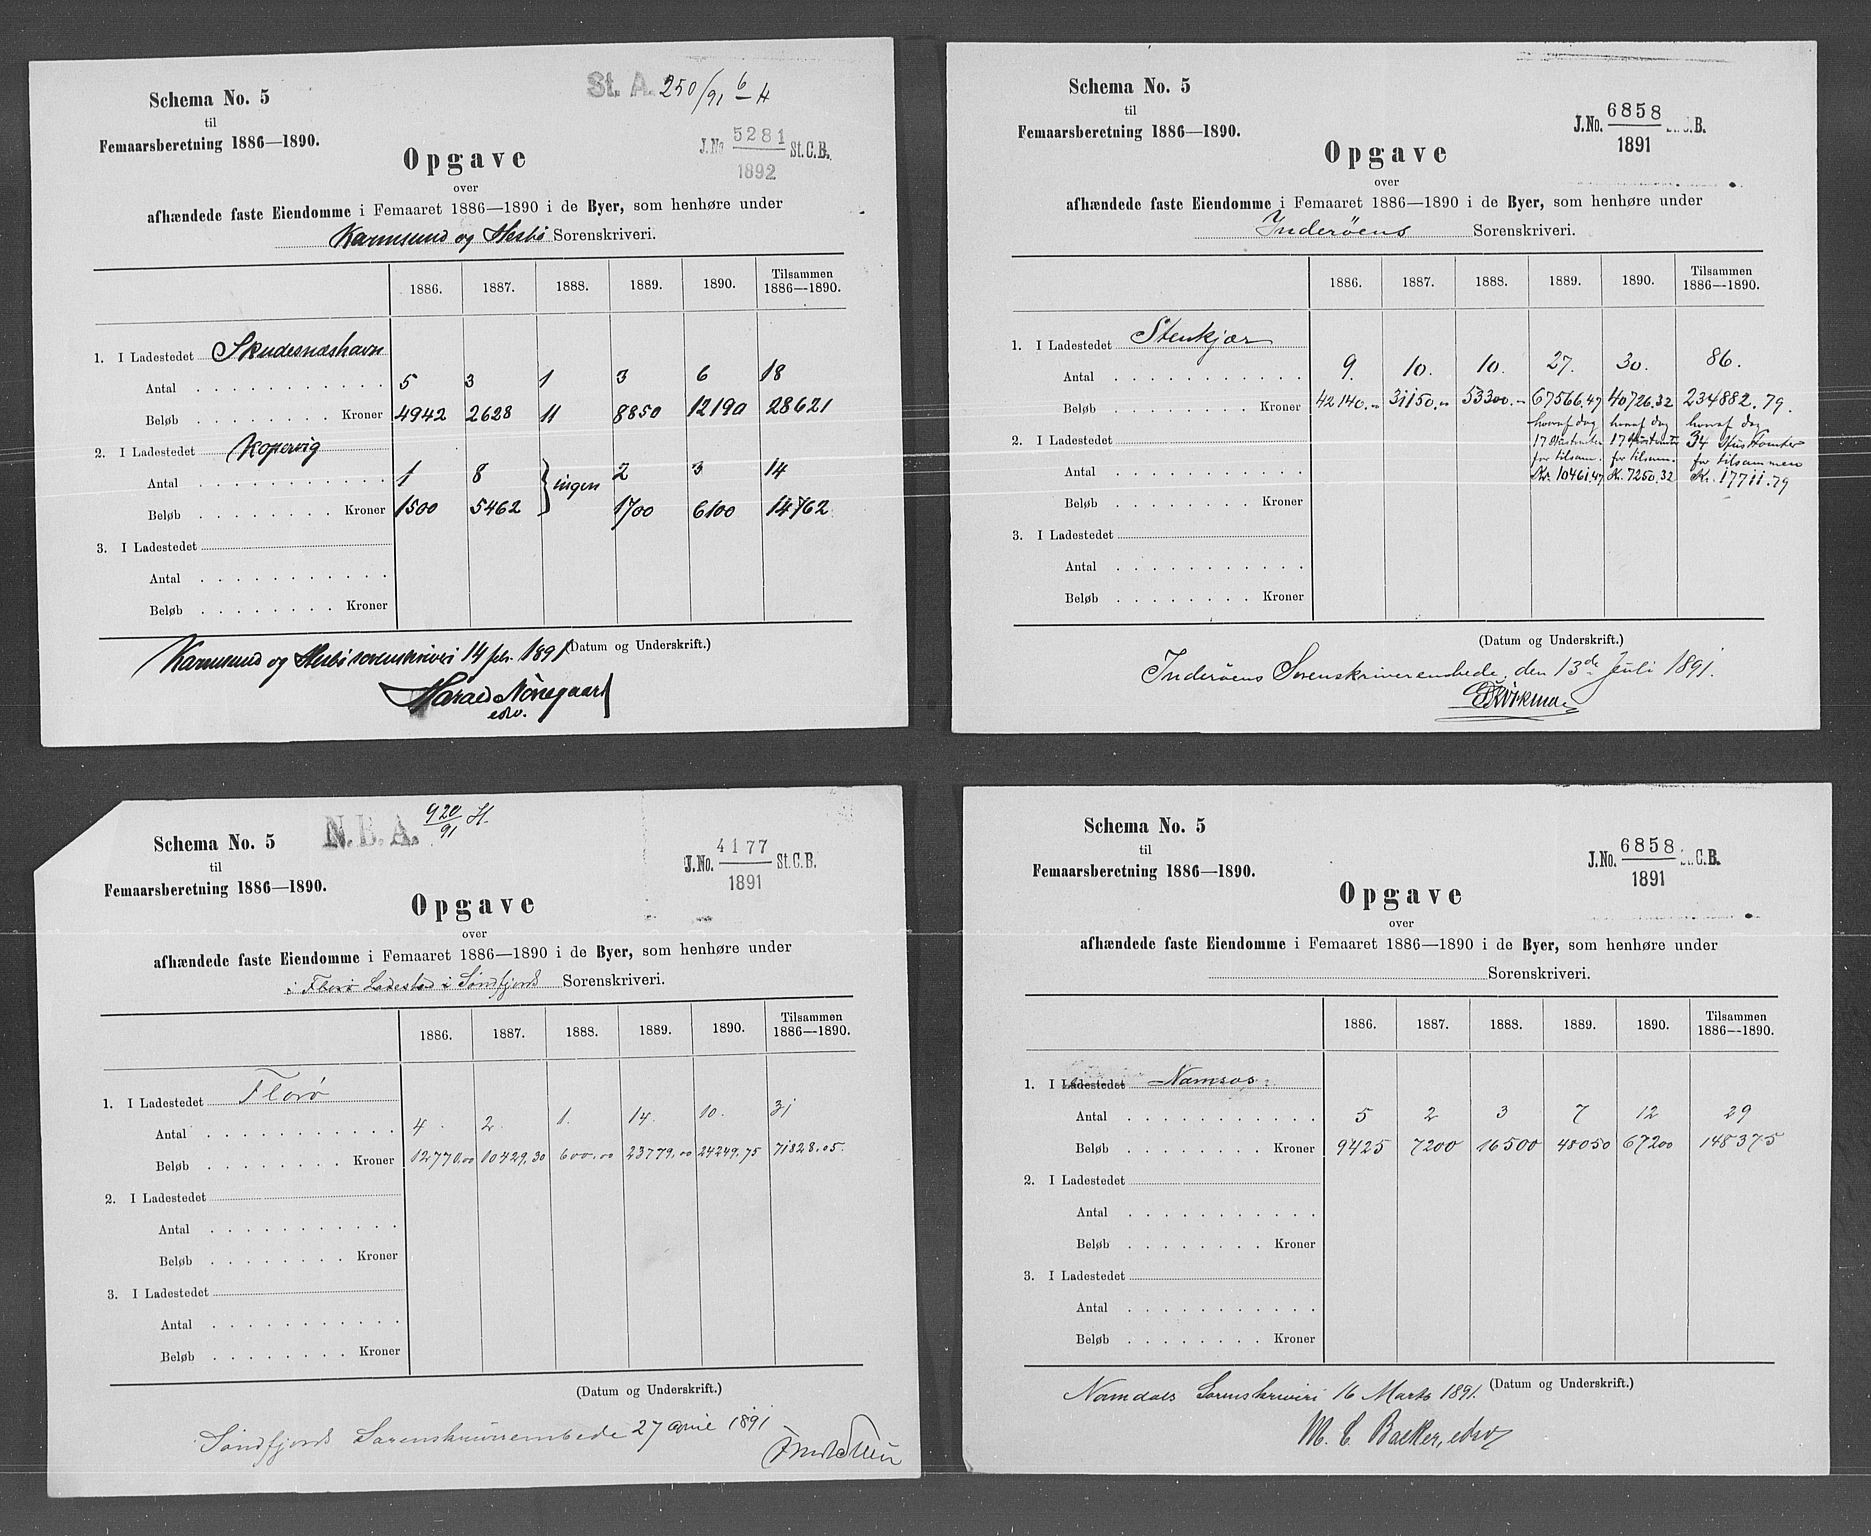 Schema No. 5
til
Femaarsberetning 1886—1890.
St. A. 250/91 6/4
J.No 5281/1892 St.C.B.
Opgave
over
afhændede faste Eiendomme i Femaaret 1886—1890 i de Byer, som henhøre under
Karmsund og Hesbø Sorenskriveri.
1886. 1887. 1888. 1889. 1890. Tilsammen 1886—1890.
1. I Ladestedet Skudesnæshavn
Antal 5 3 1 3 6 18
Beløb Kroner 4942 2628 11 8850 12190 28621
2. I Ladestedet Kopervig
Antal 1 8 } ingen 2 3 14
Beløb Kroner 1500 5462 1700 6100 14762
3. I Ladestedet
Antal
Beløb Kroner
(Datum og Underskrift.)
Karmsund og Hesbø sorenskriveri 14 febr. 1891
Harald Nørregaard
edv.
Schema No. 5
til
Femaarsberetning 1886—1890.
J.No. 6858/1891 St.C.B.
Opgave
over
afhændede faste Eiendomme i Femaaret 1886—1890 i de Byer, som henhøre under
Inderøens Sorenskriveri.
1886. 1887. 1888. 1889. 1890. Tilsammen 1886—1890.
1. I Ladestedet Stenkjær
Antal 9. 10. 10. 27. 30. 86.
Beløb Kroner 42140.„ 31150.„ 53300.„ 67566.47 40726.32 234882.79.
hvoraf dog hvoraf dog hvoraf dog
2. I Ladestedet 17 Hustomter 17 Hustomter 34 Hustomter
for tilsam. for tilsam. for tilsammen
Antal Kr. 10461.47 Kr. 7250.32 Kr. 17711.79
Beløb Kroner
3. I Ladestedet
Antal
Beløb Kroner
(Datum og Underskrift.)
Inderøens Sorenskriverembede, den 13de Juli 1891.
Schema No. 5
til
Femaarsberetning 1886—1890.
N.B.A. 920/91 H.
J.No. 4177/1891 St.C.B.
Opgave
over
afhændede faste Eiendomme i Femaaret 1886—1890 i de Byer, som henhøre under
i Florø Ladested i Søndfjords Sorenskriveri.
1886. 1887. 1888. 1889. 1890. Tilsammen 1886—1890.
1. I Ladestedet Florø
Antal 4. 2. 1. 14. 10. 31
Beløb Kroner 12770.00 10429.30 600.00 23779.00 24249.75 71828.05.
2. I Ladestedet
Antal
Beløb Kroner
3. I Ladestedet
Antal
Beløb Kroner
(Datum og Underskrift.)
Søndfjords Sorenskriverembede 27 april 1891
Schema No. 5
til
Femaarsberetning 1886—1890.
J.No. 6858/1891 St.C.B.
Opgave
over
afhændede faste Eiendomme i Femaaret 1886—1890 i de Byer, som henhøre under
Sorenskriveri.
1886. 1887. 1888. 1889. 1890. Tilsammen 1886—1890.
1. I Ladestedet Namsos.
Antal 5 2 3 7 12 29
Beløb Kroner 9425 7200 16500 48050 67200 148375
2. I Ladestedet
Antal
Beløb Kroner
3. I Ladestedet
Antal
Beløb Kroner
(Datum og Underskrift.)
Namdals Sorenskriveri 16 Marts 1891.
M. C. Backer, edsv